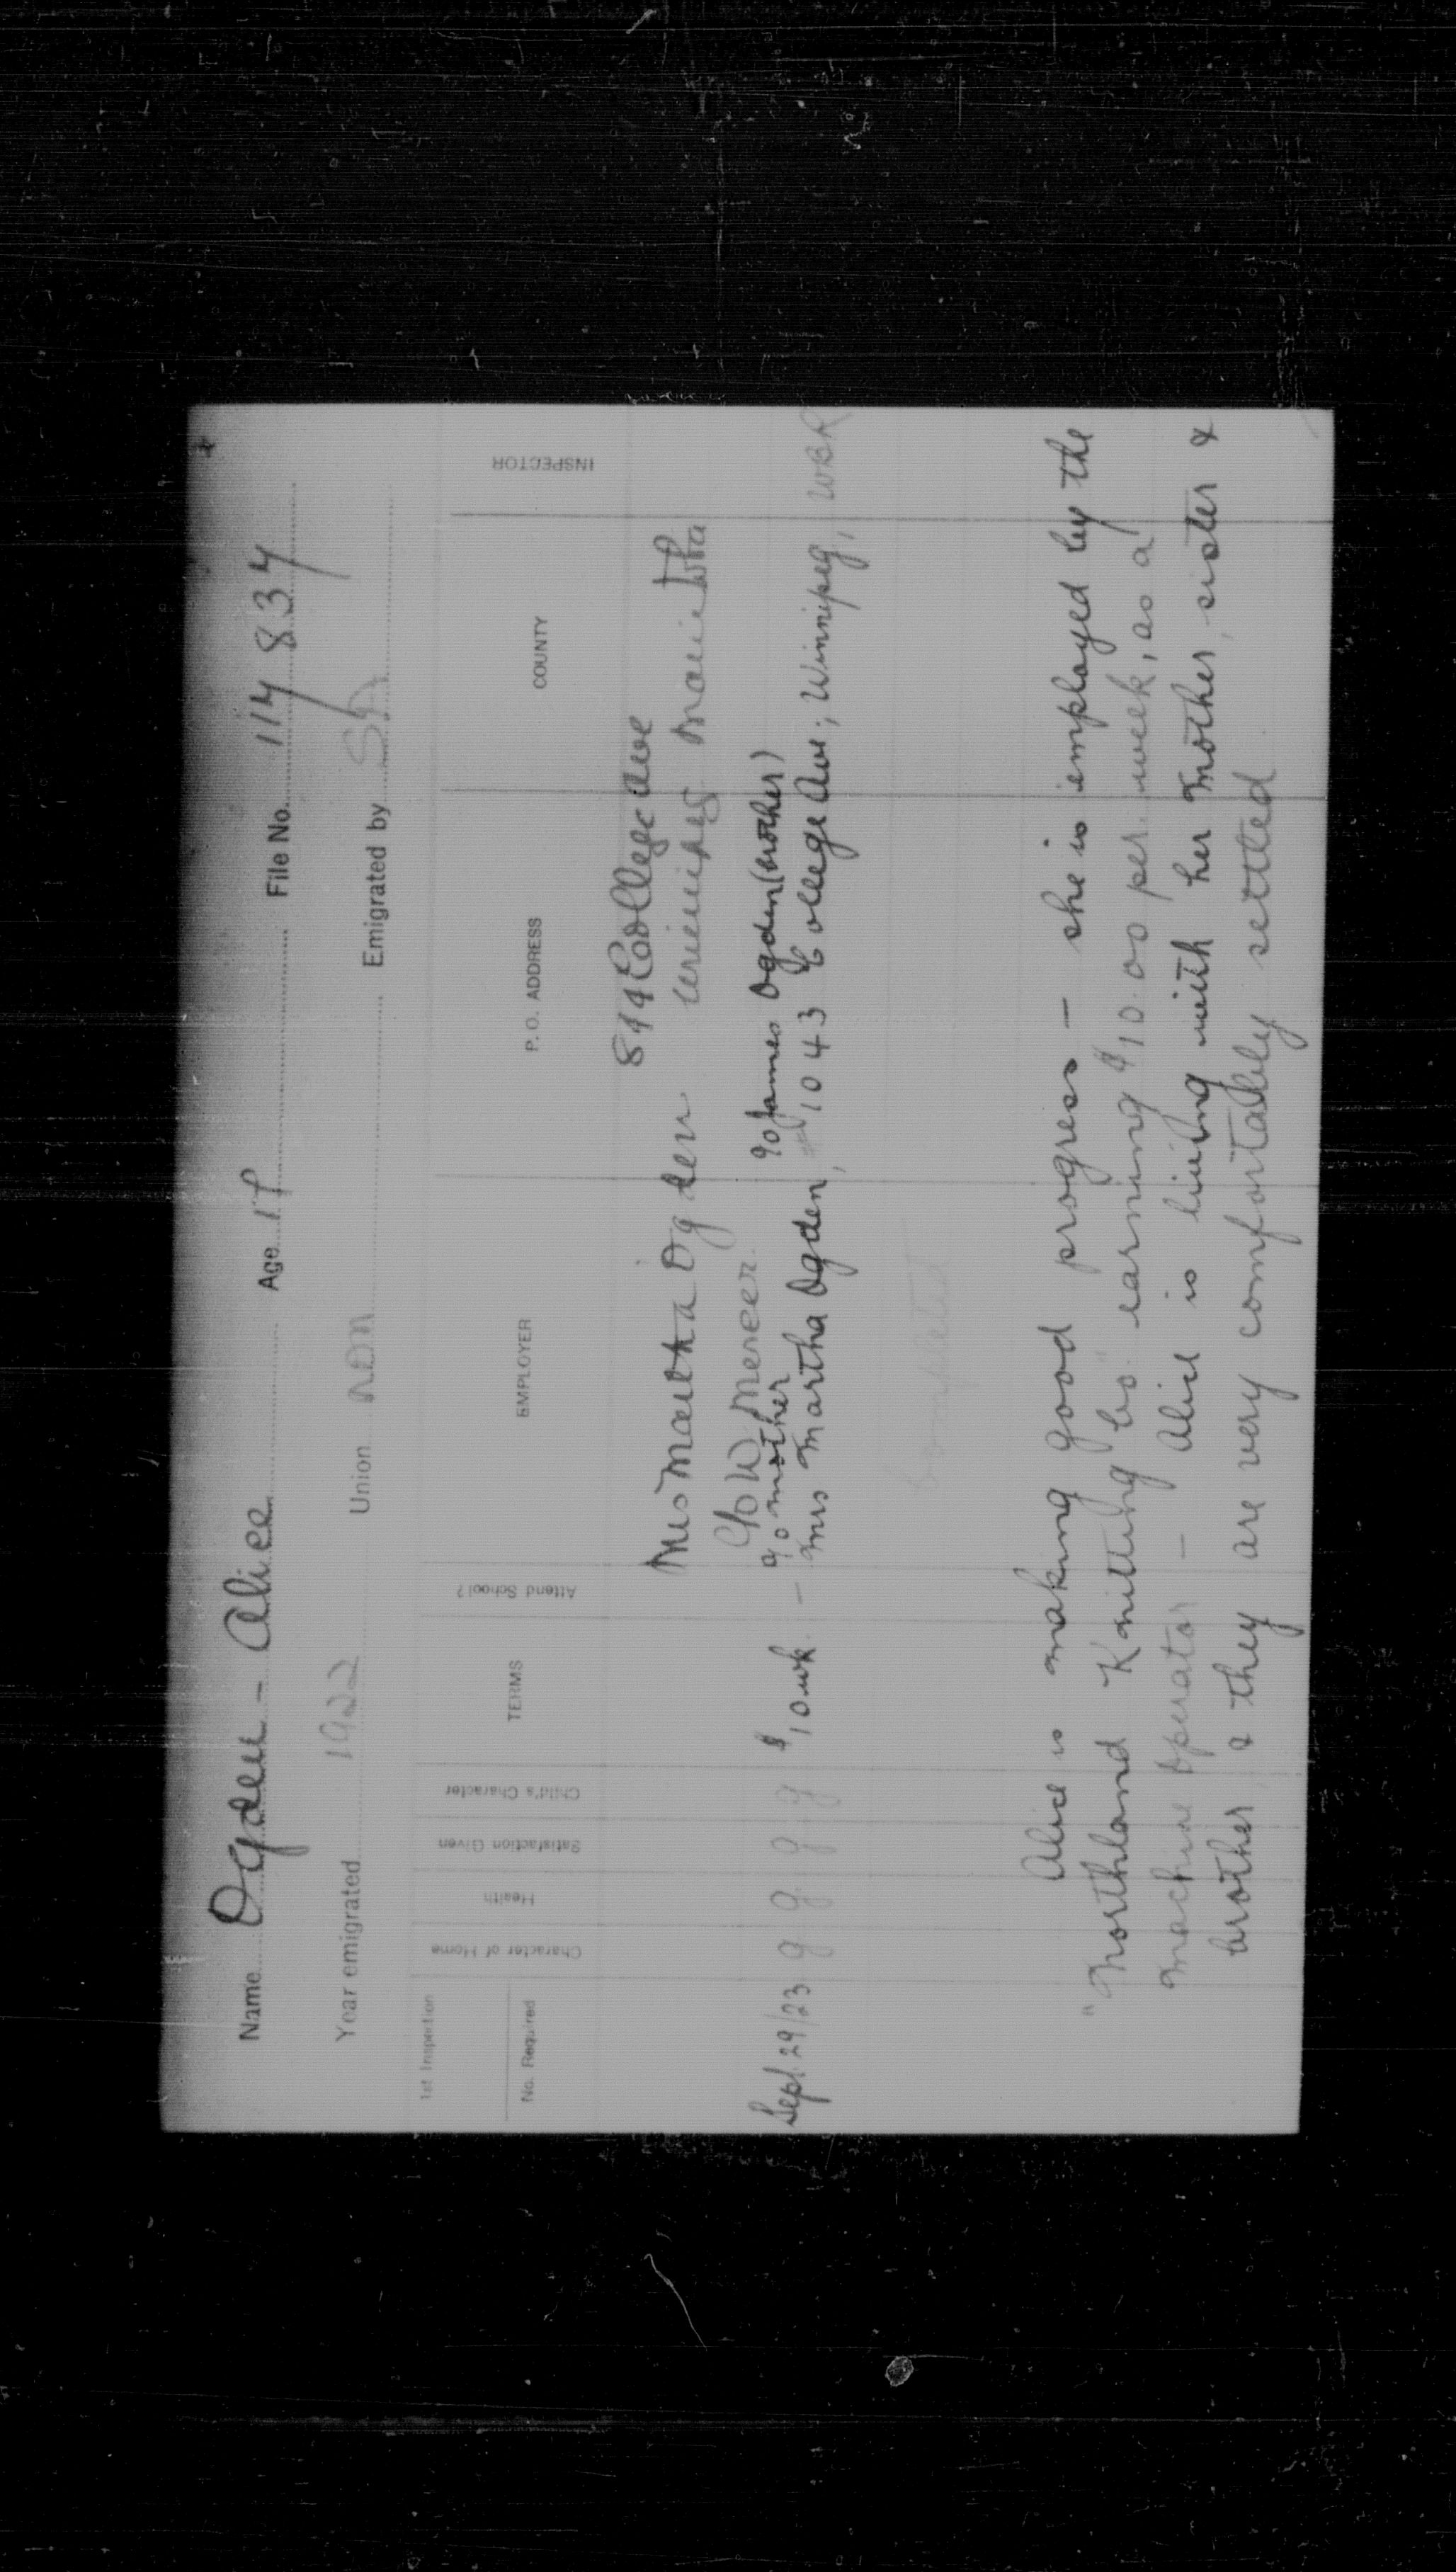 Name Ogden - Alice Age 17 File No. 114834
Year emigrated 1922 Union Emigrated by SA
1st Inspection
No. Required
Character of Home
Health
Satisfaction Given
Child's Character
TERMS
Attend School?
EMPLOYER
P. O. ADDRESS
COUNTY
INSPECTOR
Mrs Martha Ogden College Ave
Winnipeg Manitoba
c/o W Mercer
c/o mother c/o James Ogden (brother)
Sept. 29/23 g g g g $10 wk. — Mrs Martha Ogden, # 1043 College Ave; Winnipeg, WBR
Completed
Alice is making good progress — she is employed by the
"Northland Knitting Co." earning $10.00 per week, as a
machine operator — Alice is living with her mother, sister &
brother & they are very comfortably settled